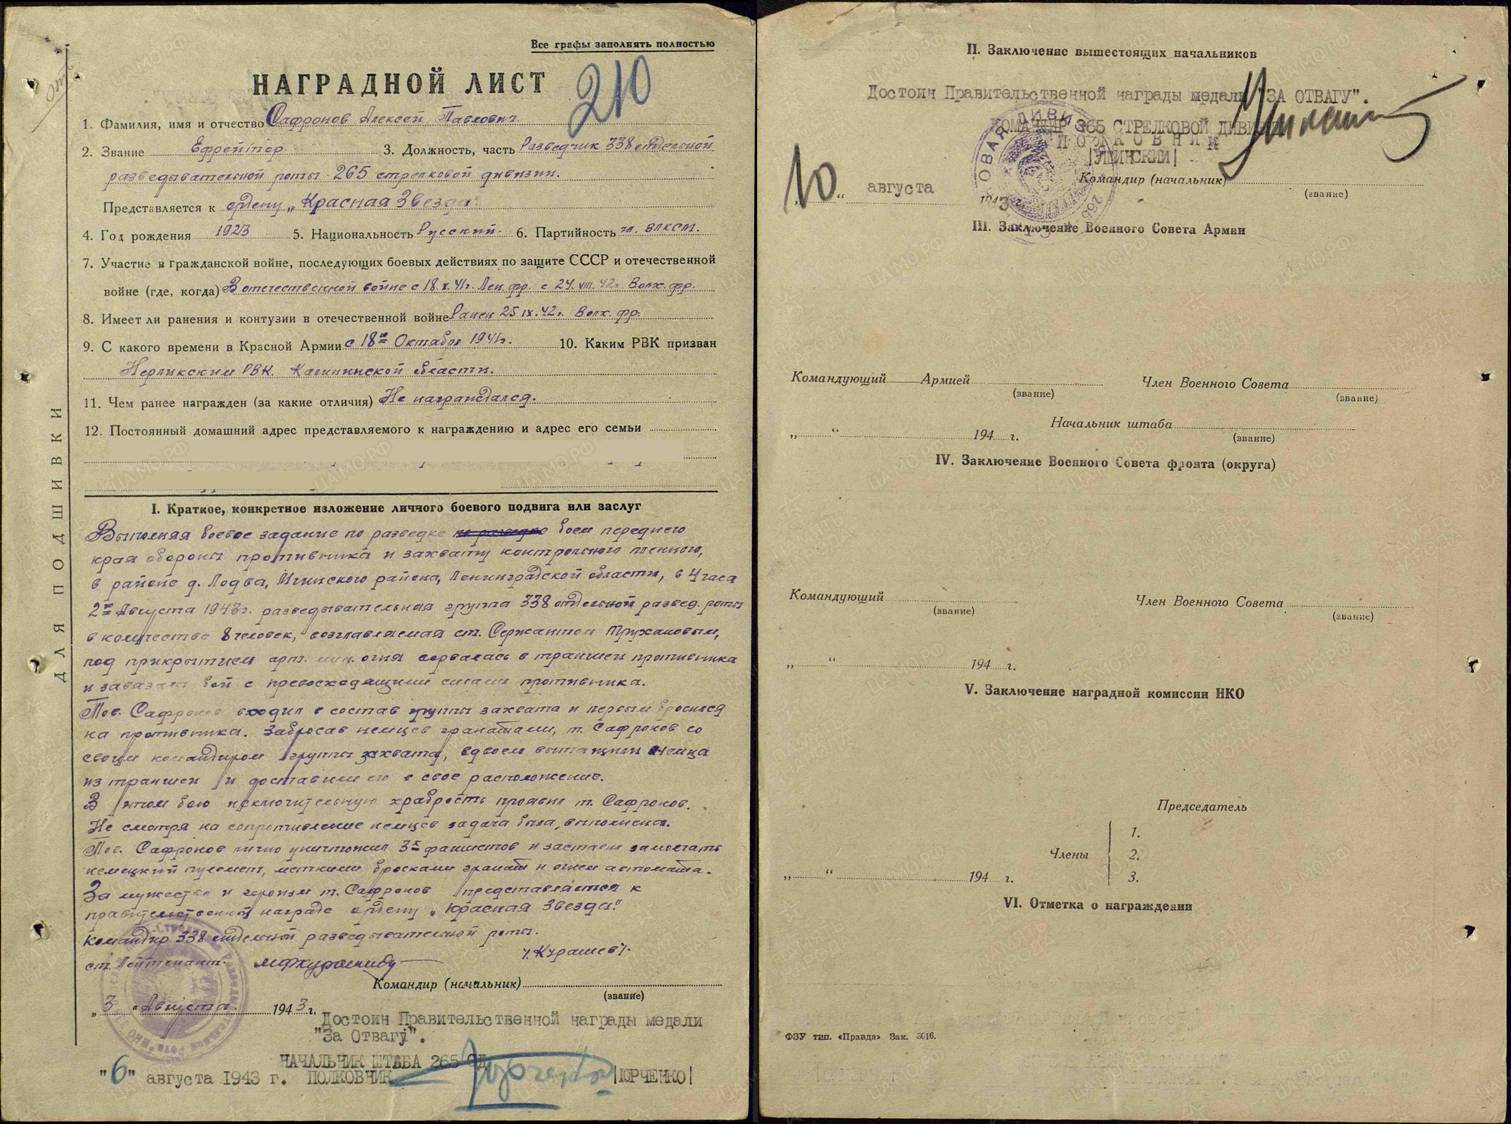 Все графы заполнять полностью
НАГРАДНОЙ ЛИСТ
210
1. Фамилия, имя и отчество Сафронов Алексей Павлович
2. Звание Ефрейтор 3. Должность, часть Разведчик 338 отдельной
разведывательной роты 265 стрелковой дивизии.
Представляется к ордену „Красная Звезда"
4. Год рождения 1923 5. Национальность Русский. 6. Партийность чл. ВЛКСМ.
7. Участие в гражданской войне, последующих боевых действиях по защите СССР и отечественной
войне (где, когда) В отечественной войне с 18.X.41г. Лен. фр. с 24.VIII.42г. Волх. фр.
8. Имеет ли ранения и контузии в отечественной войне Ранен 25 IX.42г. Волх. фр.
9. С какого времени в Красной Армии с 18го Октября 1941г. 10. Каким РВК призван
РВК. Калининской области.
11. Чем ранее награжден (за какие отличия) Не награждался.
12. Постоянный домашний адрес представляемого к награждению и адрес его семьи
ДЛЯ ПОДШИВКИ
I. Краткое, конкретное изложение личного боевого подвига или заслуг
Выполняя боевое задание по разведке боем переднего
края обороны противника и захвату контрольного пленного,
в районе д. Лодва, Мгинского района, Ленинградской области, в 4 часа
2го Августа 1943г. разведывательная группа 338 отдельной развед. роты
в количестве 8 человек, возглавляемая ст. Сержантом Трухановым,
под прикрытием арт. мин. огня ворвалась в траншеи противника
и завязала бой с превосходящими силами противника.
Тов. Сафронов входил в состав группы захвата и первым бросился
на противника. Забросав немцев гранатами, т. Сафронов со
своим командиром группы захвата, вдвоем вытащили немца
из траншеи и доставили его в свое расположение.
В этом бою исключительную храбрость проявил т. Сафронов.
Не смотря на сопротивление немцев задача была выполнена.
Тов. Сафронов лично уничтожил 3х фашистов и заставил замолчать
немецкий пулемет, меткими бросками гранаты и огнем автомата.
За мужество и героизм т. Сафронов представляется к
правительственной награде ордену „Красная Звезда"
Командир 338 отдельной разведывательной роты.
ст. Лейтенант /Курашев/.
Командир (начальник)
(звание)
„3" Августа 1943 г.
Достоин Правительственной награды медали
"За Отвагу".
НАЧАЛЬНИК ШТАБА 265 СД
"6" августа 1943 г. ПОЛКОВНИК |ЮРЧЕНКО|
II. Заключение вышестоящих начальников
Достоин Правительственной награды медали "ЗА ОТВАГУ".
КОМАНДИР 265 СТРЕЛКОВОЙ ДИВИЗИИ
ПОЛКОВНИК
|УШИНСКИЙ|
„10" августа 1943 г.
Командир (начальник)
(звание)
III. Заключение Военного Совета Армии
Командующий Армией Член Военного Совета
(звание) (звание)
Начальник штаба
„ " 194 г. (звание)
IV. Заключение Военного Совета фронта (округа)
Командующий Член Военного Совета
(звание) (звание)
„ " 194 г.
V. Заключение наградной комиссии НКО
Председатель
1.
Члены 2.
3.
„ " 194 г.
VI. Отметка о награждении
ФЗУ тип. «Правда» Зак. 3016.